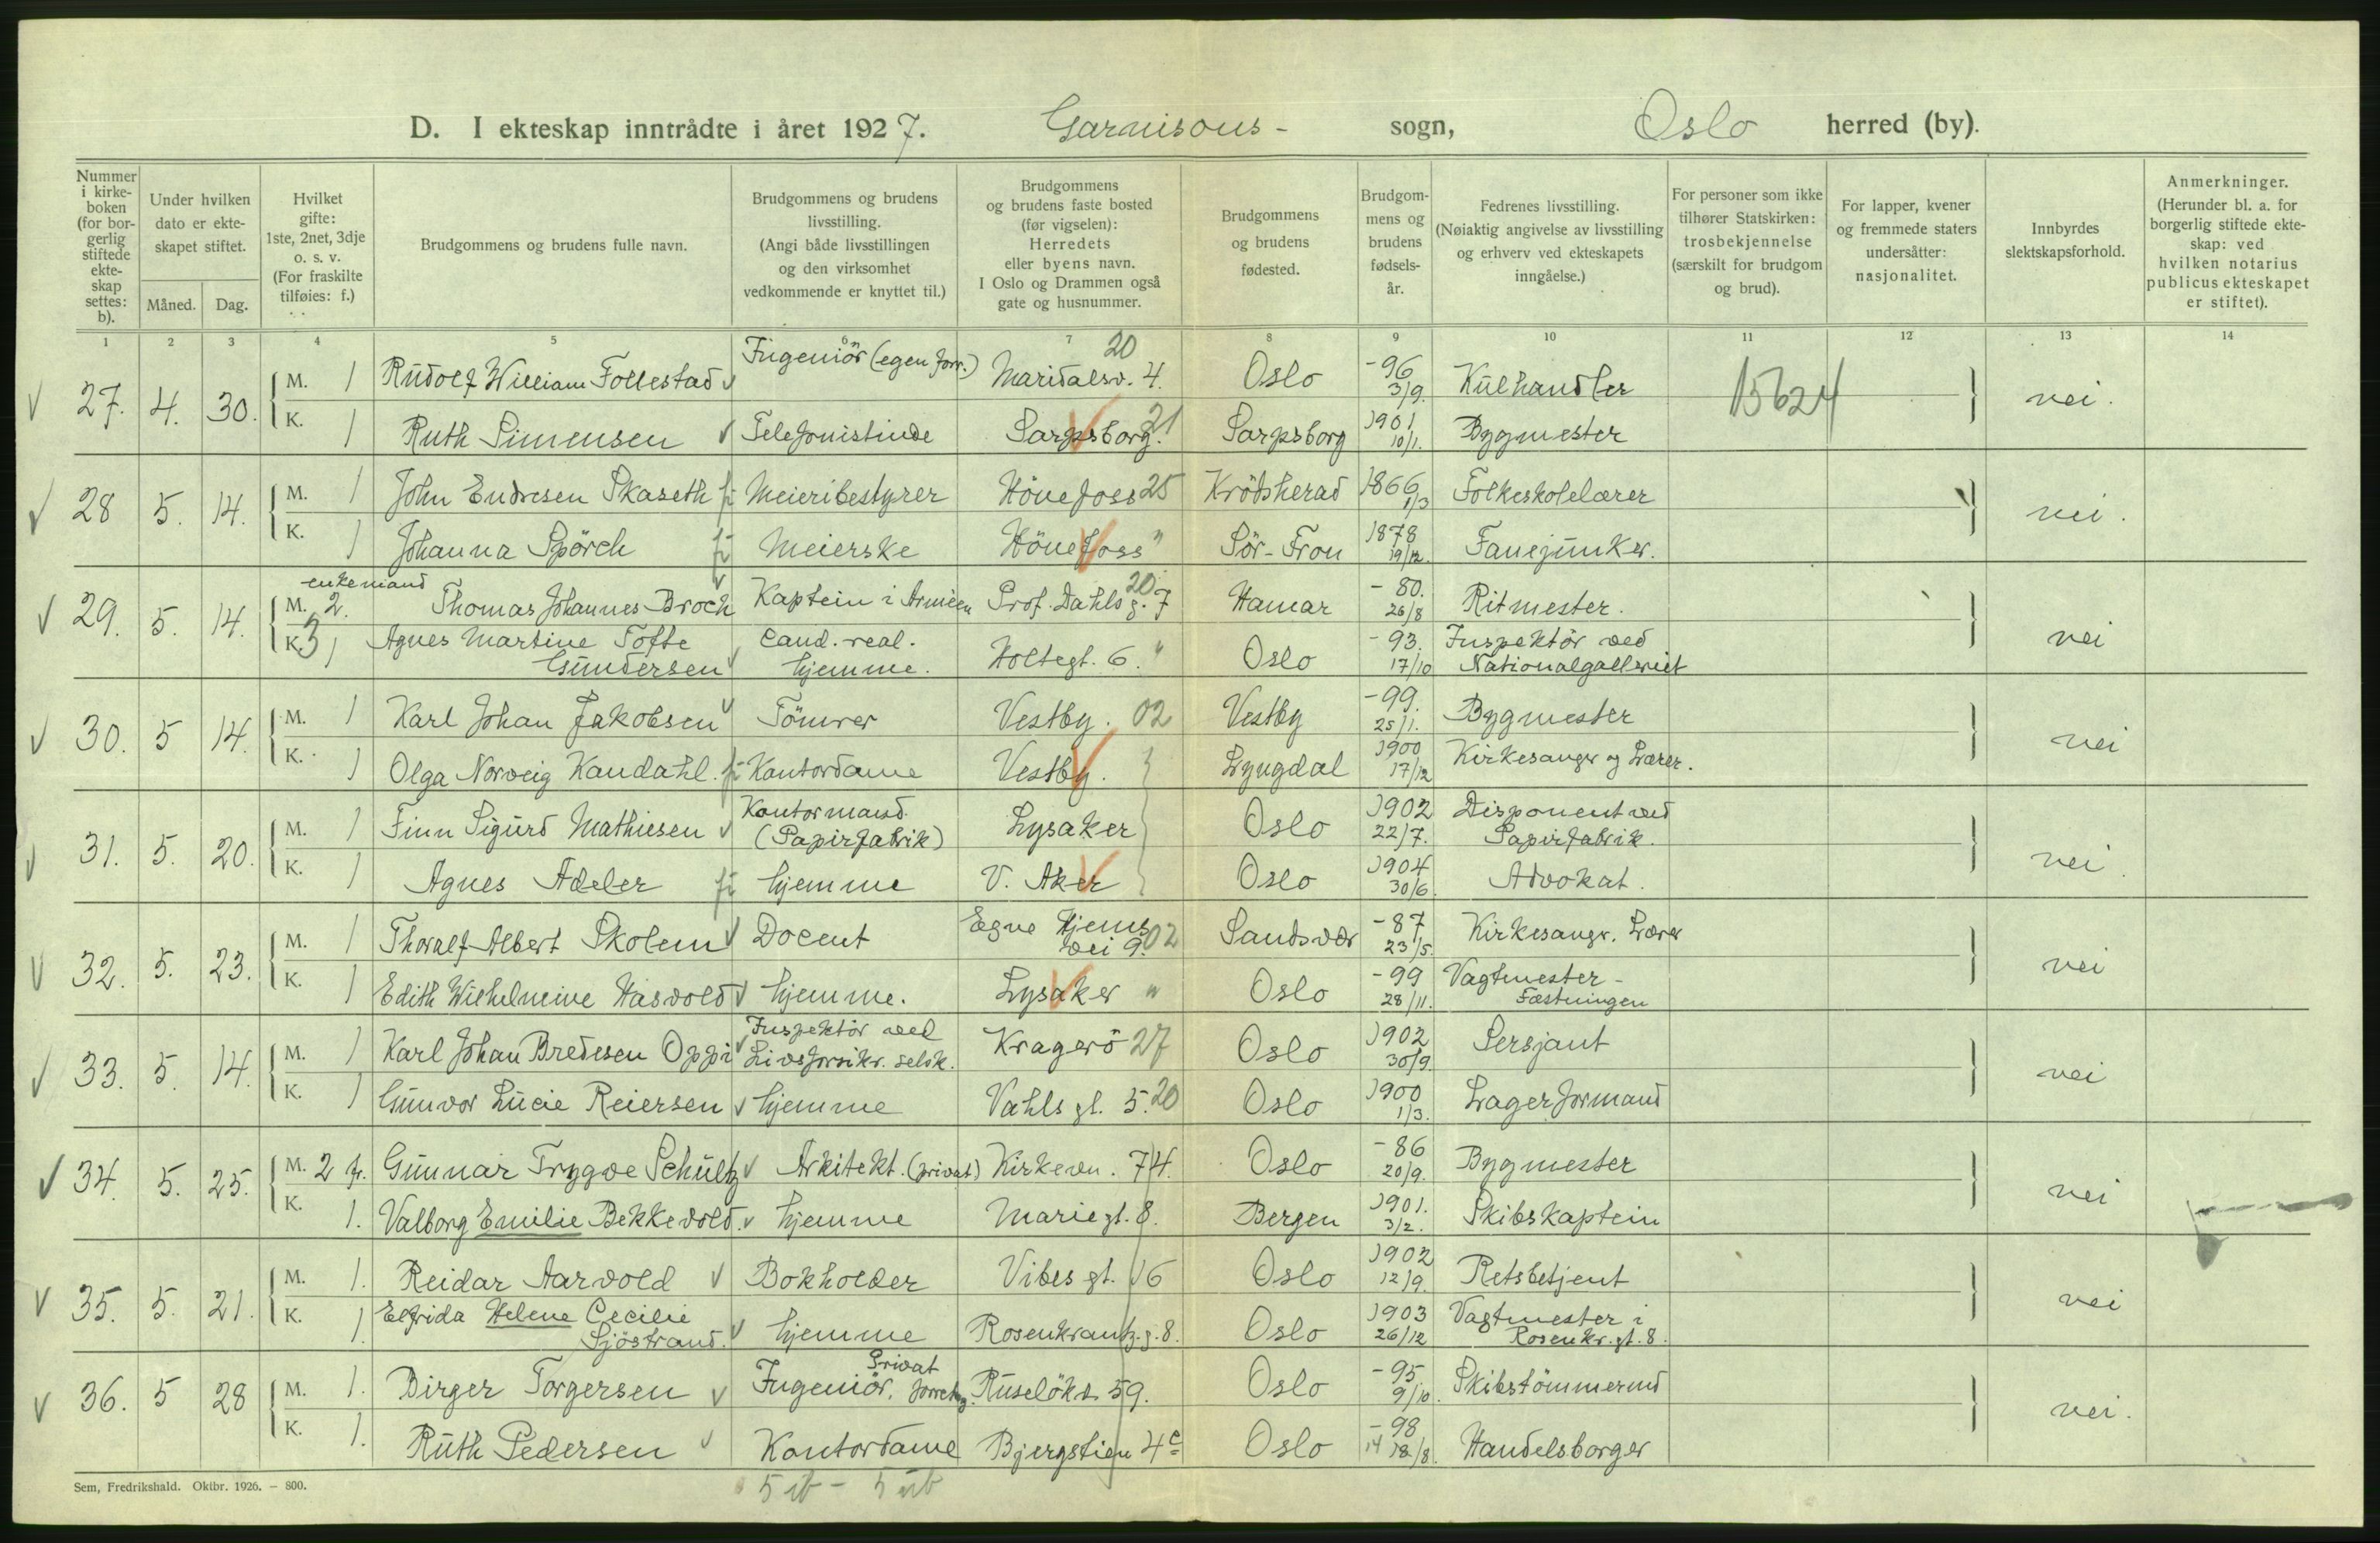 D. I ekteskap inntrådte i året 1927. Garnisons- sogn, Oslo herred (by).
Nummer i kirkeboken (for borgerlig stiftede ekteskap settes: b).
Under hvilken dato er ekteskapet stiftet.
Måned. Dag.
Hvilket gifte: 1ste, 2net, 3dje o. s. v. (For fraskilte tilføies: f.)
Brudgommens og brudens fulle navn.
Brudgommens og brudens livsstilling. (Angi både livsstillingen og den virksomhet vedkommende er knyttet til.)
Brudgommens og brudens faste bosted (før vigselen): Herredets eller byens navn. I Oslo og Drammen også gate og husnummer.
Brudgommens og brudens fødested.
Brudgommens og brudens fødselsår.
Fedrenes livsstilling. (Nøiaktig angivelse av livsstilling og erhverv ved ekteskapets inngåelse.)
For personer som ikke tilhører Statskirken: trosbekjennelse (særskilt for brudgom og brud).
For lapper, kvener og fremmede staters undersåtter: nasjonalitet.
Innbyrdes slektskapsforhold.
Anmerkninger. (Herunder bl. a. for borgerlig stiftede ekteskap: ved hvilken notarius publicus ekteskapet er stiftet).
1 2 3 4 5 6 7 8 9 10 11 12 13 14
27. 4. 30. M. 1 Rudolf William Follestad Ingeniör (egen forr.) Maridalsv. 4. 20 Oslo -96 3/9. Kulhandler 15624 nei.
K. 1 Ruth Simensen Telefonistinde Sarpsborg. 21 Sarpsborg 1901 10/1. Bygmester
28 5. 14. M. 1 John Endresen Skaseth Meieribestyrer Hönefoss 25 Krödsherad 1866 1/3 Folkeskolelærer nei.
K. 1 Johanna Spörch Meierske Hönefoss " Sör-Fron 1878 19/12. Fanejunker.
29. 5. 14. M. 2. enkemand Thomas Johannes Broch Kaptein i Armeen Prof. Dahls g. 7 20 Hamar -80. 26/8 Ritmester. nei
K. 1 Agnes Martine Tofte Gundersen Cand. real. hjemme. Holtegt. 6. " Oslo -93. 17/10 Inspektör ved Nationalgalleriet
30. 5 14. M. 1 Karl Johan Jakobsen Tömrer Vestby. 02 Vestby -99. 25/1. Bygmester nei
K. 1 Olga Norveig Kandahl. Kontordame Vestby. Lyngdal 1900 17/12 Kirkesanger og Lærer.
31. 5. 20. M. 1 Finn Sigurd Mathiesen Kontormand. (Papirfabrik) Lysaker Oslo 1902 22/7. Disponent ved Papirfabrik. nei
K. 1 Agnes Adeler hjemme V. Aker Oslo 1904 30/6. Advokat.
32. 5. 23. M. 1 Thoralf Albert Skolem Docent Egne Hjems vei 9. 02 Sandsvær -87 23/5. Kirkesangr. Lærer nei
K. 1 Edith Wilhelmine Hasvold hjemme. Lysaker " Oslo -99 28/11. Vagtmester - Fæstningen
33. 5. 14. M. 1 Karl Johan Bredesen Oppi Inspektör ved Livsforsikr. selsk. Kragerö 27 Oslo 1902 30/9. Sersjant nei
K. 1 Gunvor Lucie Reiersen hjemme Vahls gt. 5. 20 Oslo 1900 1/3. Lagerformand
34. 5. 25. M. 2 fr. Gunnar Trygve Schultz Arkitekt. (privat) Kirkevn. 74. Oslo -86 20/9. Bygmester nei
K. 1. Valborg Emilie Bekkevold. hjemme Mariegt. 8. Bergen 1901. 3/2. Skibskaptein
35. 5. 21. M. 1. Reidar Aarvold Bokholder Vibes gt. 16 Oslo 1902 12/9. Retsbetjent nei
K. 1. Elfrida Helene Cecilie Sjöstrand. hjemme Rosenkrantz.g. 8. Oslo 1903 26/12 Vagtmester i Rosenkr. gt. 8.
36. 5 28 M. 1. Birger Torgersen Ingeniör. Privat forretng. Ruselökv. 59. Oslo -95 9/10. Skibstömmermd nei.
K. 1. Ruth Pedersen Kontordame Bjergstien 4c Oslo -98 18/8. Handelsborger
Sem, Fredrikshald. Oktbr. 1926. — 800.